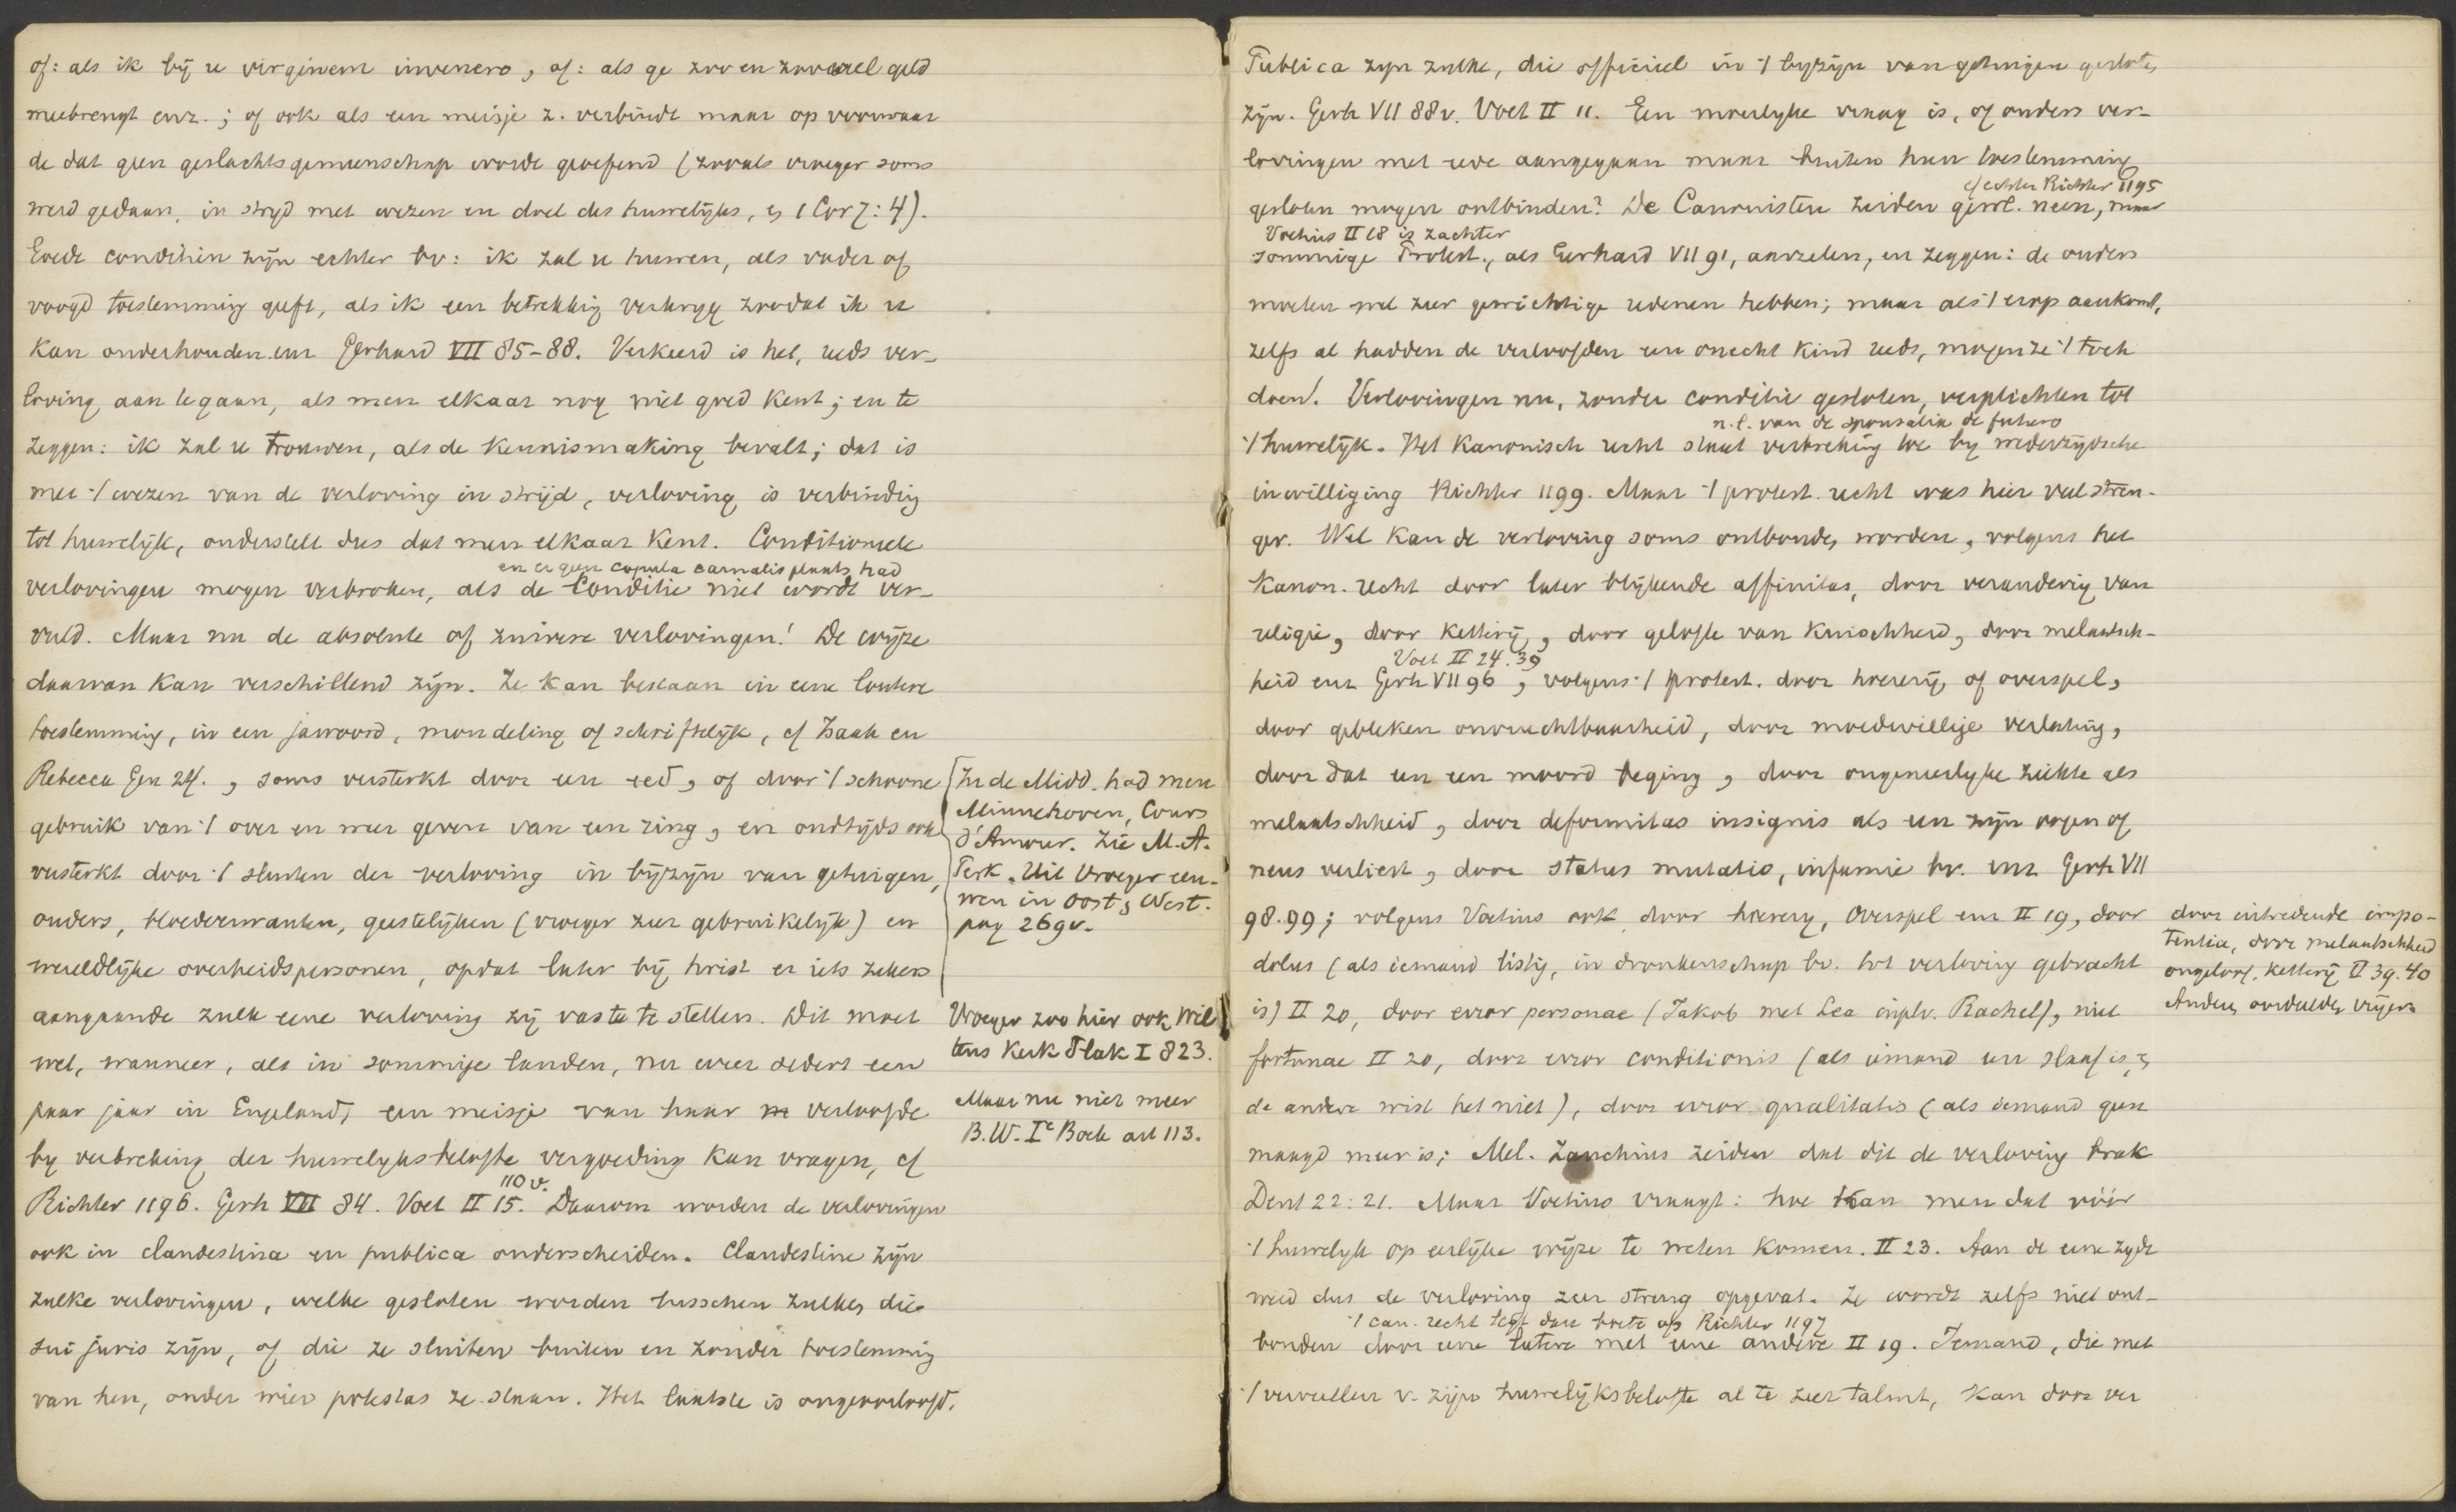 of: als ik bij u virginem invenero, of: als ge zoo en zooveel geld
meebrengt enz.; of ook als een meisje z. verbindt maar op voorwaar
de dat geen geslachtsgemeenschap worde geoefend (zooals vroeger soms
werd gedaan, in strijd met wezen en doel des huwelijks, 1 Cor 7:4).
Goede conditiën zijn echter bv: ik zal u huwen, als vader of
voogd toestemming geeft, als ik een betrekking verkrijg zoodat ik u
kan onderhouden enz Gerhard VII 85-88. Verkeerd is het, reeds ver-
loving aan te gaan, als men elkaar nog niet goed kent; en te
zeggen: ik zal u trouwen, als de kennismaking bevalt; dat is
met 't wezen van de verloving in strijd, verloving is verbinding
tot huwelijk, onderstelt dus dat men elkaar kent. Conditioneele
en er geen copula carnalis plaats had
verlovingen mogen verbroken, als de conditie niet wordt ver-
vuld. Maar nu de absolute of zuivere verlovingen! De wijze
daarvan kan verschillend zijn. Ze kan bestaan in eene loutere
toestemming, in een jawoord, mondeling of schriftelijk, cf Izaak en
Rebecca Gen 24., soms versterkt door een eed, of door 't schoone
gebruik van 't over en weer geven van een ring, en oudtijds ook
versterkt door 't sluiten der verloving in bijzijn van getuigen,
ouders, bloedverwanten, geestelijken (vroeger zeer gebruikelijk) en
wereldlijke overheidspersonen, opdat later bij twist er iets zekers
aangaande zulk eene verloving zij vast te stellen. Dit moet
wel, wanneer, als in sommige landen, nu weer sedert een
paar jaar in Engeland, een meisje van haar verloofde
bij verbreking der huwelijksbelofte vergoeding kan vragen, cf
110 v.
Richter 1196. Gerh VII 84. Voet II 15. Daarom worden de verlovingen
ook in clandestina en publica onderscheiden. Clandestine zijn
zulke verlovingen, welke gesloten worden tusschen zulken, die
sui juris zijn, of die ze sluiten buiten en zonder toestemming
van hen, onder wier potestas ze staan. Het laatste is ongeoorloofd.
In de Midd. had men
Minnehoven, Cours
d'Amour. Zie M.A.
Perk. Uit vroeger eeu-
wen in Oost & West.
pag 269v.
Vroeger zoo hier ook Wil
tens Kerk Plak I 823.
Maar nu niet meer
B.W. Ie Boek art 113.
Publica zijn zulke, die officieel in 't bijzijn van getuigen gesloten
zijn. Gerh VII 88v. Voet II 11. Een moeilijke vraag is, of ouders ver-
lovingen met rede aangegaan maar buiten hun toestemming
cf echter Richter 1195
gesloten mogen ontbinden? De Canonisten zeiden gewl. neen, maar
Voetius II 18 is zachter
sommige Protest., als Gerhard VII 91, aarzelen, en zeggen: de ouders
moeten wel zeer gewichtige redenen hebben; maar als 't erop aankomt,
zelfs al hadden de verloofden een onecht kind reeds, mogen ze 't toch
doen! Verlovingen nu, zonder conditie gesloten, verplichten tot
n.l. van de sponsalia de futuro
't huwelijk. Het Kanonisch recht staat verbreking toe bij wederzijdsche
inwilliging Richter 1199. Maar 't protest. recht was hier veel stren-
ger. Wel kan de verloving soms ontbonden worden, volgens het
Kanon. recht door later blijkende affinitas, door verandering van
religie, door ketterij, door gelofte van kuischheid, door melaatsch-
Voet II 24. 39
heid enz Gerh VII 96, volgens 't protest. door hoererij of overspel,
door gebleken onvruchtbaarheid, door moedwillige verlating,
door dat een een moord beging, door ongeneeslijke ziekte als
melaatschheid, door deformitas insignis als een zijn oogen of
neus verliest, door status mutatio, infamie bv. enz Gerh VII
98.99; volgens Voetius ook door hoererij, overspel enz II 19, door
dolus (als iemand listig, in dronkenschap bv. tot verloving gebracht
is) II 20, door error personae (Jakob met Lea inplv. Rachel), niet
fortunae II 20, door error conditionis (als iemand een slaaf is, en
de andere wist het niet), door error qualitatis (als iemand geen
maagd meer is; Mel. Zanchius zeiden dat dit de verloving brak
Deut 22:21. Maar Voetius vraagt: hoe kan men dat vóór
't huwelijk op eerlijke wijze te weten komen. II 23. Aan de eene zijde
werd dus de verloving zeer streng opgevat. Ze wordt zelfs niet ont-
't can. recht legt dan boete op Richter 1197
bonden door eene latere met eene andere II 19. Iemand, die met
't vervullen v. zijn huwelijksbelofte al te zeer talmt, kan door ver
door intredende impo-
tentia, door melaatschheid
ongeloof, ketterij II 39. 40
Anderen oordeelden vrijer